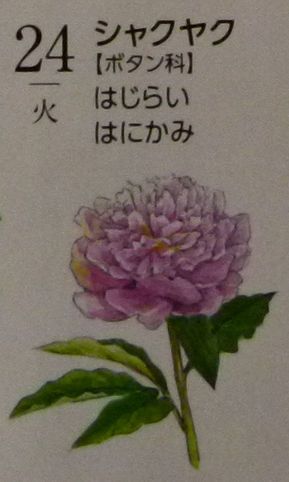 24
火
シャクヤク
【ボタン科】
はじらい
はにかみ